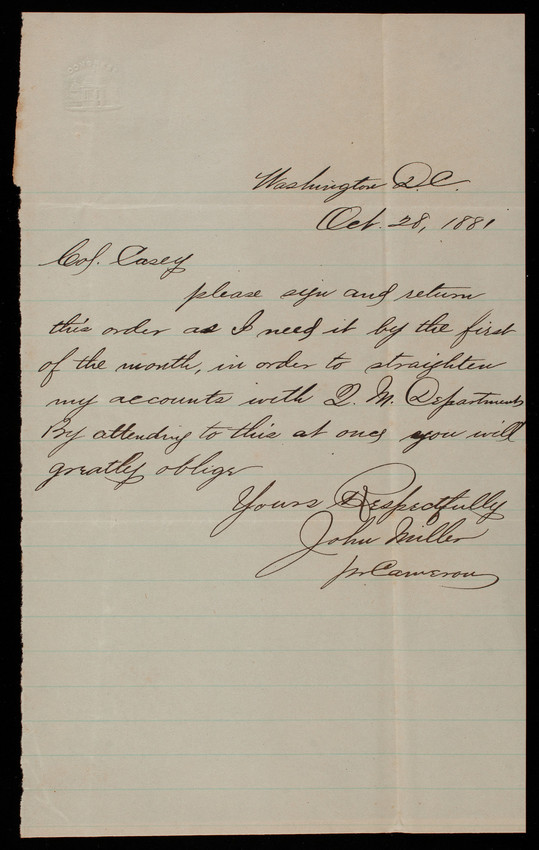 Washington D.C.
Oct. 28, 1881
Col. Casey
please sign and return
this order as I need it by the first
of the month, in order to straighten
my accounts with Q. M. Department
By attending to this at once you will
greatly oblige
Yours Respectfully
John Miller
pr Cameron